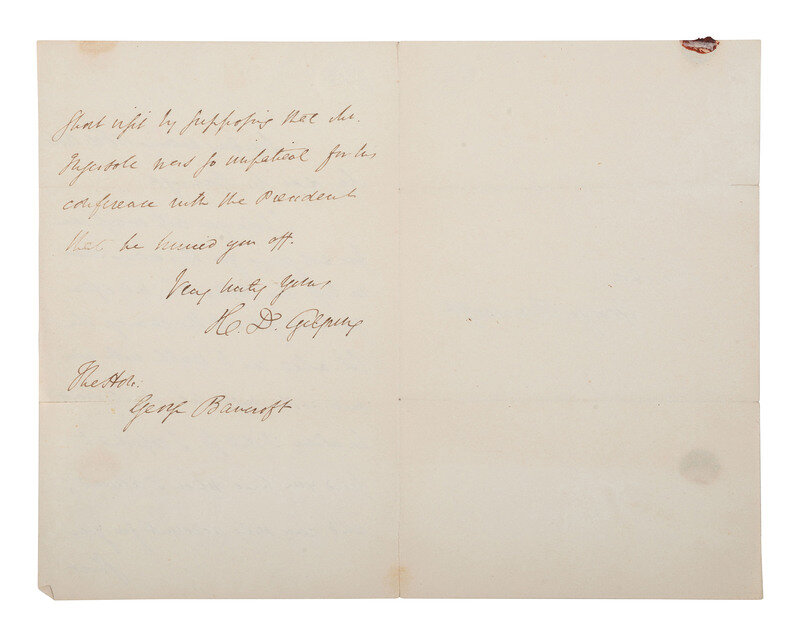 short visit by supposing that Mr.
Ingersoll was so impatient for his
conference with the President
that he hurried you off.
Very truly yours
H. D. Gilpin
The Hon:
George Bancroft